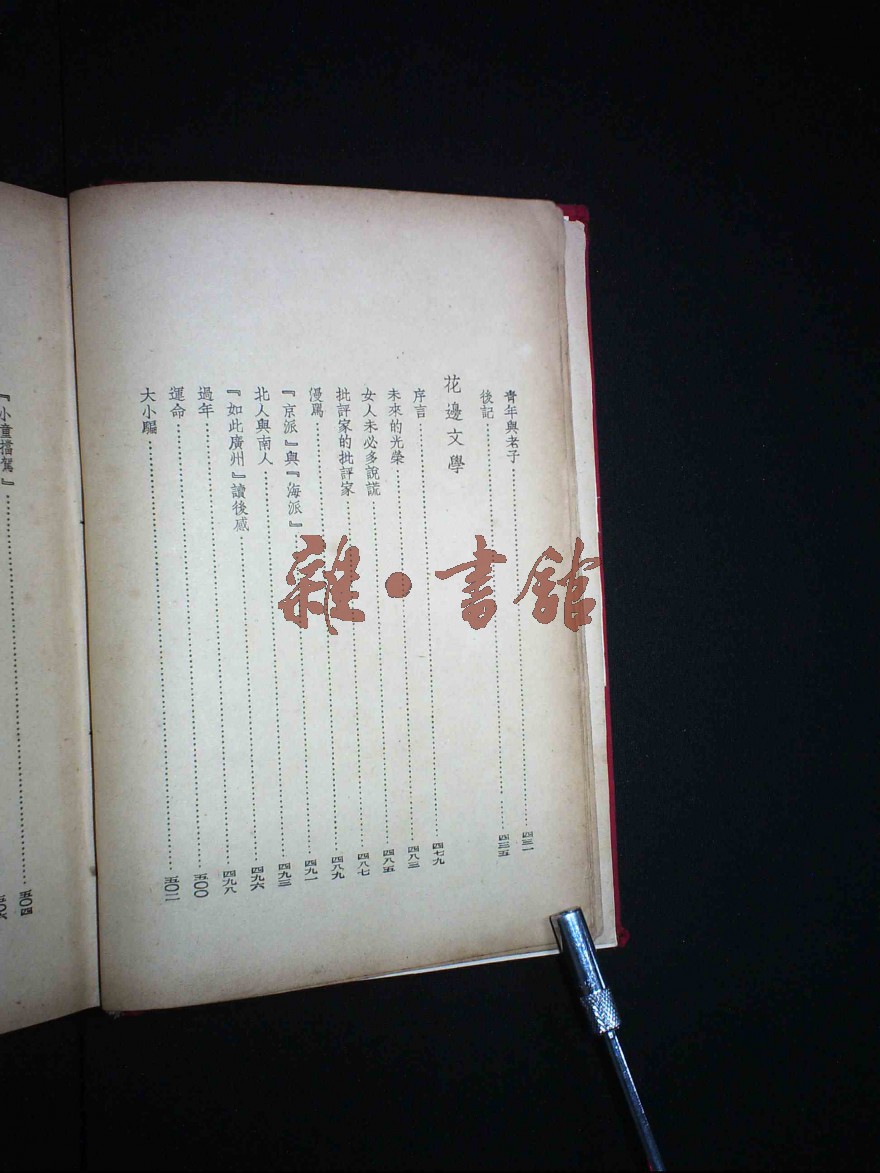 青年與老子……四三一
後記……四三五
花邊文學
序言……四七九
未來的光榮……四八三
女人未必多說謊……四八五
批評家的批評家……四八七
漫罵……四八九
『京派』與『海派』……四九一
北人與南人……四九三
『如此廣州』讀後感……四九六
過年……四九八
運命……五〇〇
大小騙……五〇二
『小童擋駕』……五〇四
五〇六
雜·書館